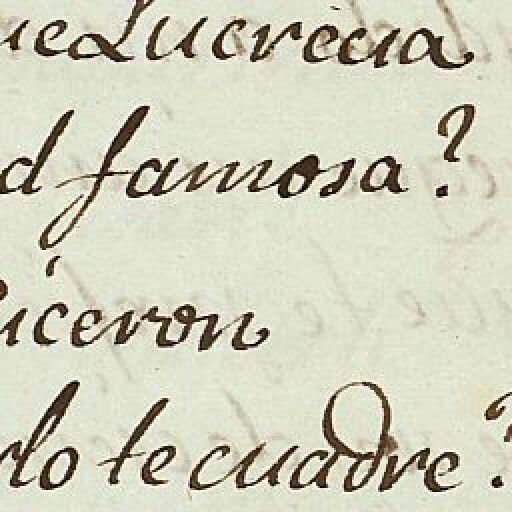 ue Lucrecia
d famosa?
Ciceron
rlo te cuadre?